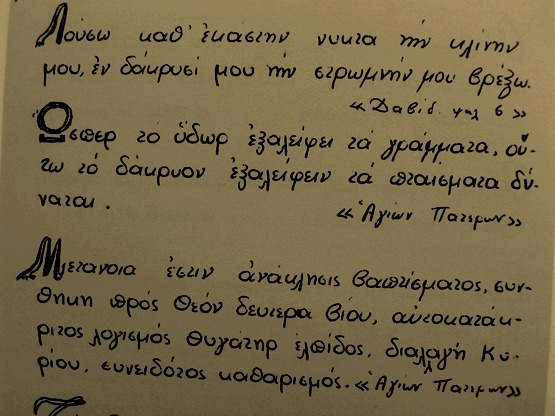 Λούσω καθ' ἑκάστην νυκτα τὴν κλίνην
μου, ἐν δάκρυσί μου τὴν στρωμνήν μου βρέξω.
«Δαβίδ. ψαλ 6»
Ὥσπερ τό ὕδωρ ἐξαλείφει τά γράμματα, οὕ-
τω τό δάκρυον ἐξαλείφειν τά πταισματα δύ-
ναται.
«Ἁγίων Πατερων»
Μετανοια ἐστιν ἀνάκλησις βαπτίσματος, συν-
θηκη πρός Θεόν δευτερα βιου, αὐτοκατάκ-
ριτος λογισμός θυγάτηρ ἐλπίδος, διαλλαγή Κυ-
ρίου, συνειδότος καθαρισμός. «Ἁγίων Πατερων»